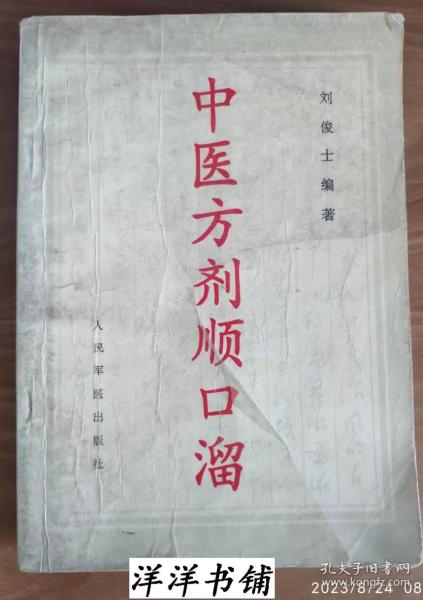 刘俊士编著
中医方剂顺口溜
人民军医出版社
洋洋书铺
孔夫子旧书网
www.kongfz.com
2023/8/24 08